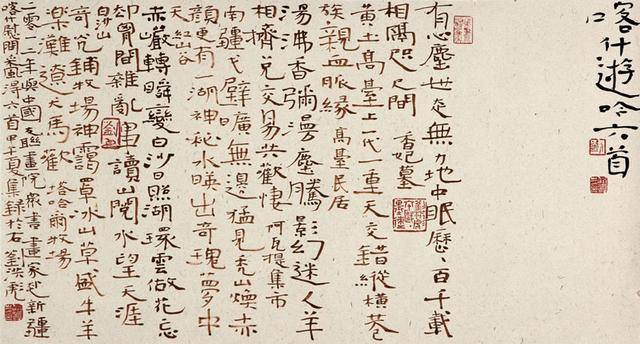 喀什遊吟六首
有心塵世處無力地中眠歷百千載
相隔咫尺間 香妃墓
黄土高臺上一代一重天交錯縱橫巷
族親血脈緣 高臺民居
湯沸香彌漫塵騰影幻迷人羊
相擠兌交易共歡 阿瓦提集市
南疆戈壁曠無邊猛見禿山煥赤
顏更有一湖神秘水暎出奇瑰夢中
天 紅山谷
赤巖轉瞬變白沙日照湖環雲做花忘
却胃間雜亂讀山閱水望天涯
白沙山
奇光鋪牧場神靄罩冰山草盛牛羊
樂難遼天馬歡 塔哈爾牧場
二零一三年與中國文聯畫院眾書畫家赴新疆
喀什慰問得六首甲午夏集錄於右劉洪彪